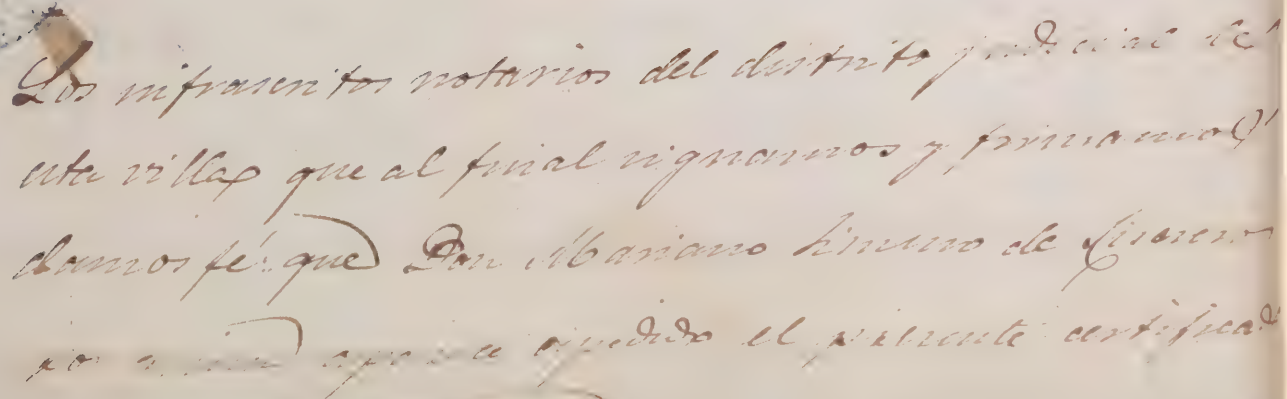 Los infrascritos notarios del distrito judicial de
esta villa que al final signamos y firmamos
damos fé: que Don Mariano Ximeno de
por quien aparece expedido el presente certificado